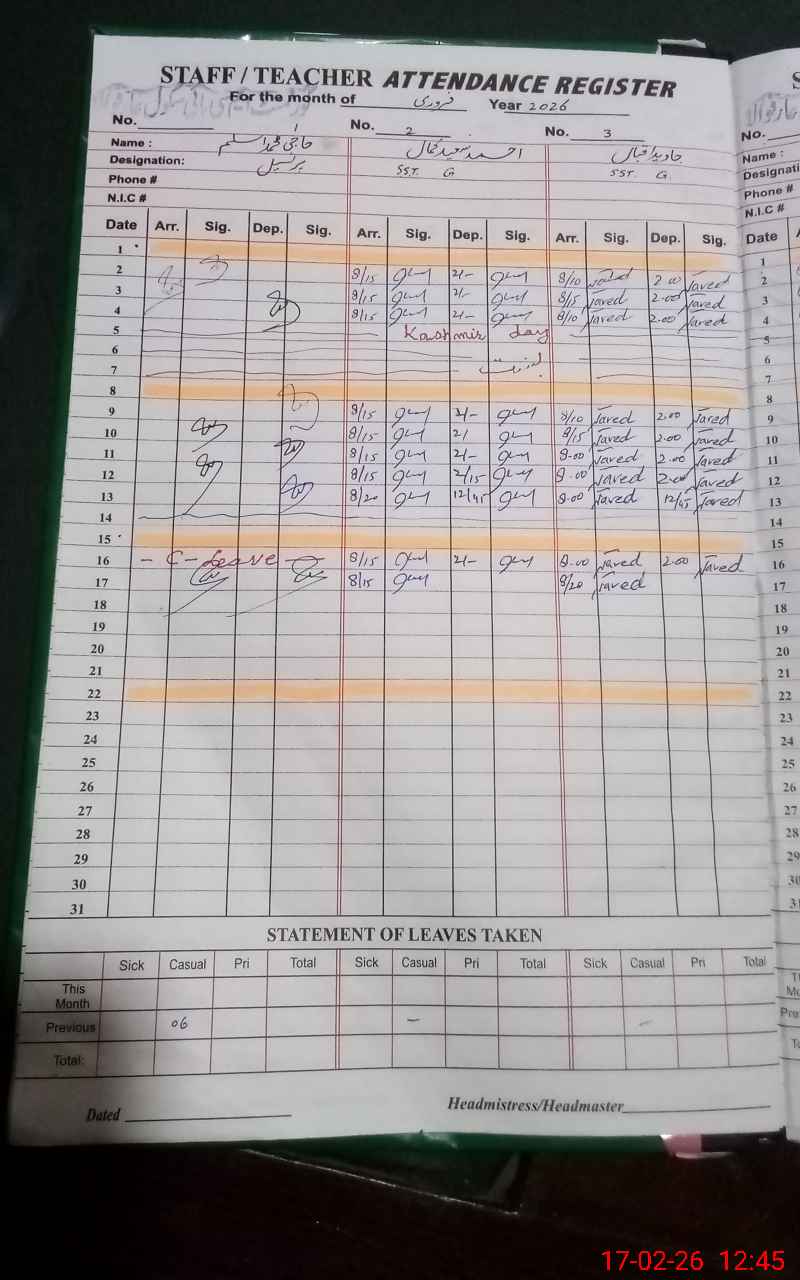 STAFF / TEACHER ATTENDANCE REGISTER
For the month of فروری Year 2026
No. 1 No. 2 No. 3
Name : حاجی محمد اسلم احمد سعید کمال جاوید اقبال
Designation: پرنسپل SST. G SST. G
Phone #
N.I.C #
Date Arr. Sig. Dep. Sig. Arr. Sig. Dep. Sig. Arr. Sig. Dep. Sig.
1
2 8/15 2/- 8/10 Javed 2.00 Javed
3 8/15 2/- 8/15 Javed 2.00 Javed
4 8/15 2/- 8/10 Javed 2.00 Javed
5 Kashmir day
6
7
8
9 8/15 2/- 8/10 Javed 2.00 Javed
10 8/15 2/ 8/15 Javed 2.00 Javed
11 8/15 2/- 8.00 Javed 2.00 Javed
12 8/15 2/15 8.00 Javed 2.00 Javed
13 8/20 12/45 8.00 Javed 12/45 Javed
14
15
16 - C-Leave 8/15 2/- 8.00 Javed 2.00 Javed
17 8/15 8/20 Javed
18
19
20
21
22
23
24
25
26
27
28
29
30
31
STATEMENT OF LEAVES TAKEN
Sick Casual Pri Total Sick Casual Pri Total Sick Casual Pri Total
This Month
Previous 06 - -
Total:
Dated Headmistress/Headmaster
No.
Name :
Phone #
N.I.C #
Date
1
2
3
4
5
6
7
8
9
10
11
12
13
14
15
16
17
18
19
20
21
22
23
24
25
26
27
28
29
30
31
17-02-26 12:45